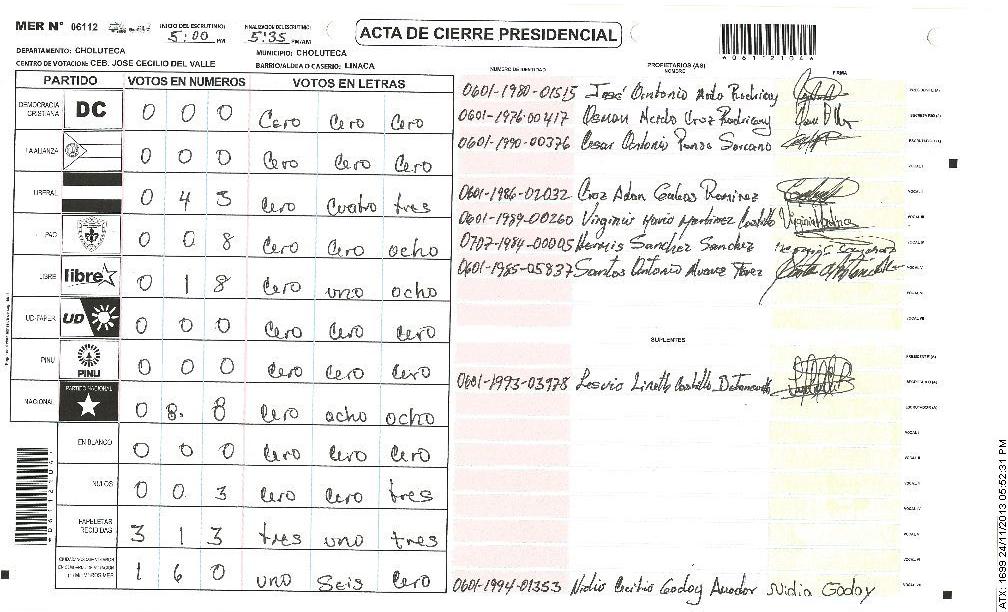 MER N° 06112 INICIO DEL ESCRUTINIO 5:00 PM FINALIZACION DEL ESCRUTINIO 5:35 PM/AM ACTA DE CIERRE PRESIDENCIAL
DEPARTAMENTO: CHOLUTECA MUNICIPIO: CHOLUTECA
CENTRO DE VOTACION: CEB. JOSE CECILIO DEL VALLE BARRIO/ALDEA O CASERIO: LINACA
PARTIDO VOTOS EN NUMEROS VOTOS EN LETRAS
DEMOCRACIA CRISTIANA DC 0 0 0 Cero Cero Cero
LA ALIANZA 0 0 0 Cero Cero Cero
LIBERAL 0 4 3 Cero Cuatro tres
PAC 0 0 8 Cero Cero ocho
LIBRE libre 0 1 8 Cero uno ocho
UD-FAPER UD 0 0 0 Cero Cero Cero
PINU PINU 0 0 0 Cero Cero Cero
NACIONAL PARTIDO NACIONAL 0 8. 8 Cero ocho ocho
EN BLANCO 0 0 0 Cero Cero Cero
NULOS 0 0 3 Cero Cero tres
PAPELETAS RECIBIDAS 3 1 3 tres uno tres
1 6 0 uno Seis Cero
NUMERO DE IDENTIDAD PROPIETARIOS (AS) NOMBRE FIRMA
0601-1980-01515 José Antonio Rodriguez PRESIDENTE (A)
0601-1976-00417 Cruz Rodriguez SECRETARIO (A)
0601-1990-00376 Cesar Antonio ESCRUTADOR (A)
VOCAL I
0601-1986-02032 Cruz Adan Ramirez VOCAL II
0601-1989-00260 Martinez Castillo VOCAL III
0707-1984-00005 Hermis Sanchez Sanchez VOCAL IV
0601-1985-05837 Santos Antonio VOCAL V
VOCAL VI
VOCAL VII
SUPLENTES
PRESIDENTE (A)
0601-1993-03978 Castillo SECRETARIO (A)
ESCRUTADOR (A)
VOCAL I
VOCAL II
VOCAL III
VOCAL IV
VOCAL V
VOCAL VI
0601-1994-01353 Nidia Godoy Amador Nidia Godoy VOCAL VII
ATX: 1699 24/11/2013 05:52:31 PM